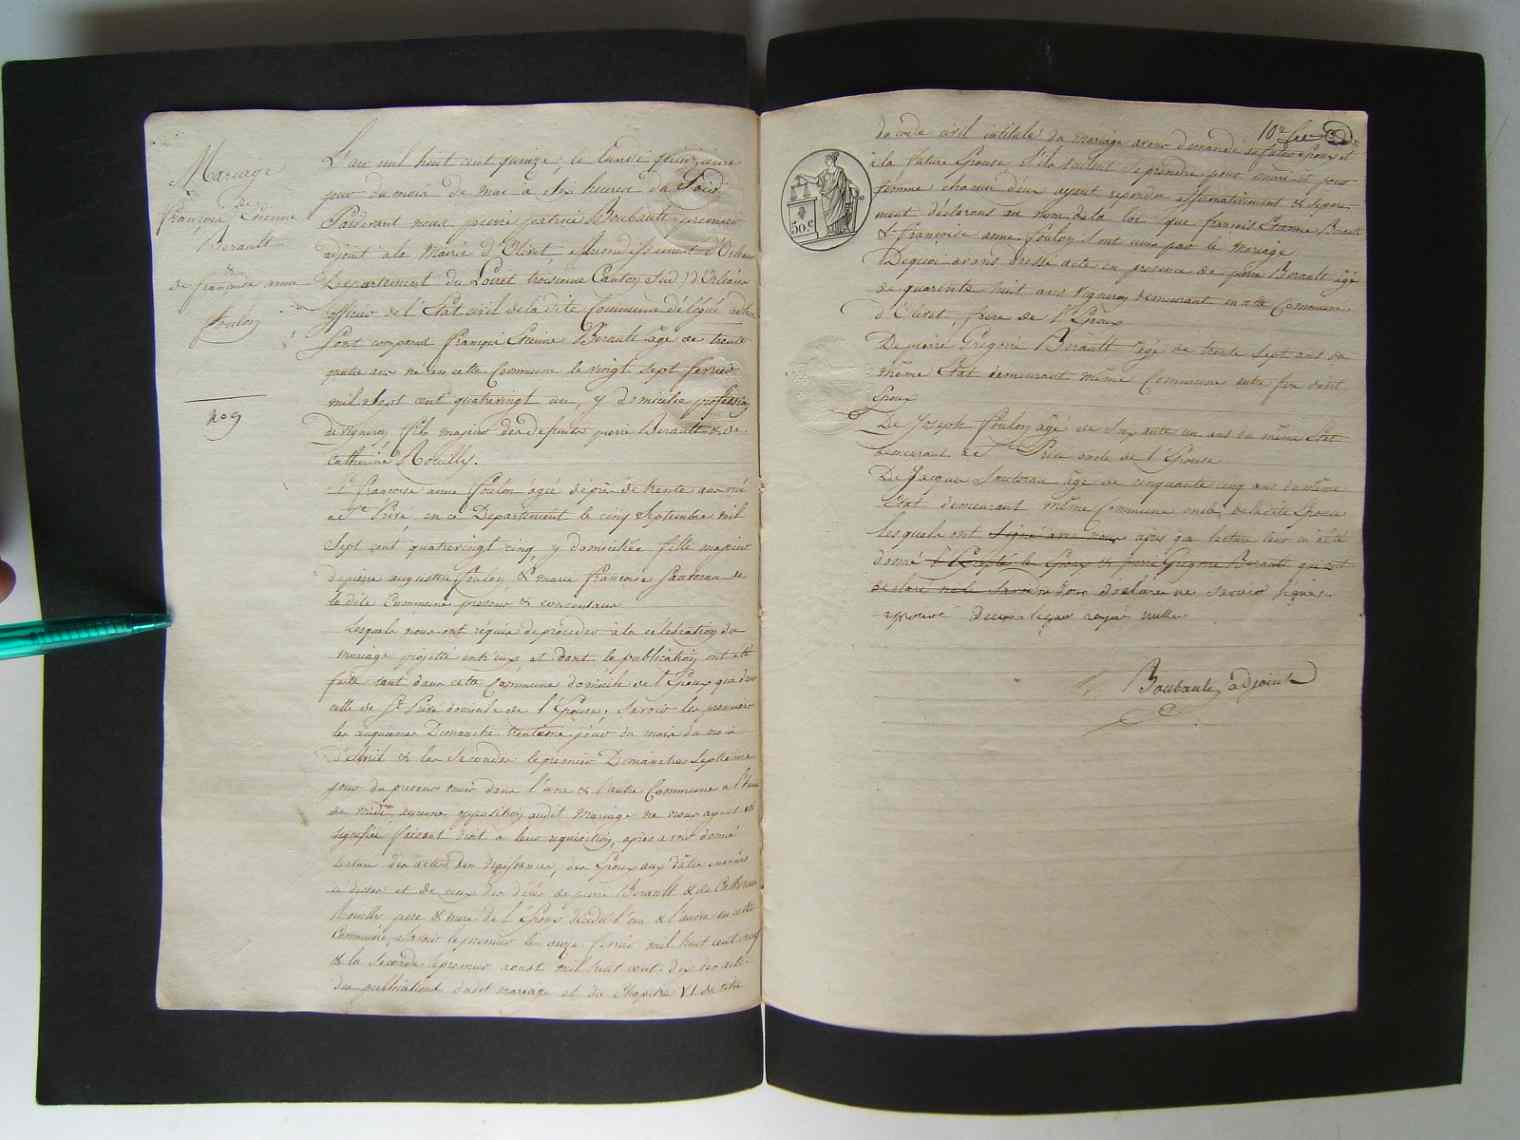 Mariage
de
françois Etienne
Berault
&
de françoise anne
foulon
no 9
L'an mil huit cent quinze, le lundi quinzieme
jour du mois de mai à six heures du Soir
Pardevant nous pierre Boubault premier
adjoint à la Mairie d'Olivet, arrondissement d'Orléans
Departement du Loiret troisieme Canton Sud d'Orléans
officier de l'Etat civil de la dite Commune délégué
Sont comparus françois Etienne Berault âgé de trente
quatre ans né en cette Commune le vingt sept fevrier
mil sept cent quatrevingt un, y domicilié profession
de vigneron fils majeur des defunts pierre Berault & de
Catherine Rouilly.
& françoise anne foulon agée de près de trente ans née
à St Privé en ce Département le cinq Septembre mil
Sept cent quatrevingt cinq, y domiciliée fille majeure
de pierre augustin foulon & marie françoise Sautereau de
la dite Commune présens & consentans
Lesquels nous ont réquis de procéder à la célébration du
mariage projetté entr'eux, et dont les publications ont été
faites tant dans cette Commune domicile de l'Epoux que dans
celle de St Privé domicile de l'Epouse; Savoir les premieres
les Dimanche trentieme jour du mois du mois
d'Avril & les Secondes le premier Dimanche Septieme
jour du present mois dans l'une & l'autre Commune à l'heure
de midi, aucune opposition audit Mariage ne nous ayant été
signifiée faisant droit à leur requisition, après avoir donné
lecture des actes des naissances, des Epoux aux dates enoncées
ci dessus et de ceux des décès de pierre Berault & de Catherine
Rouilly pere & mere de l'Epoux décédés l'un & l'autre en cette
Commune, savoir le premier le onze fevrier mil huit cent neuf
& la Seconde le premier aoust mil huit cent dix des actes
des publications dudit mariage et du Chapitre VI du titre
10e feet
du code civil intitulé du mariage avons demandé au futur epoux et
à la future Epouse s'ils veulent se prendre pour mari et pour
femme, chacun d'eux ayant repondu affirmativement & separe-
ment, déclarons au nom de la loi que françois Etienne Berault
& françoise anne foulon sont unis par le mariage
De quoi avons dressé acte en presence de pierre Berault âgé
de quarante huit ans vigneron demeurant en cette Commune
d'Olivet, frere de l'Epoux
De pierre Grégoire Berault âgé de trente sept ans du
même Etat demeurant même Commune autre frere dudit
Epoux
De Joseph foulon âgé de soixante un ans du même Etat
demeurant à St Privé oncle de l'Epouse
De Jacques Sautereau âgé de cinquante cinq ans du même
Etat demeurant même Commune oncle de ladite Epouse
lesquels ont signé avec nous après que lecture leur en a été
donné à l'Exception de l'Epoux & pierre Grégoire Berault qui ont
declaré ne le savoir ont déclaré ne savoir signer.
approuvé rayés nulle
Boubault adjoint
50.c